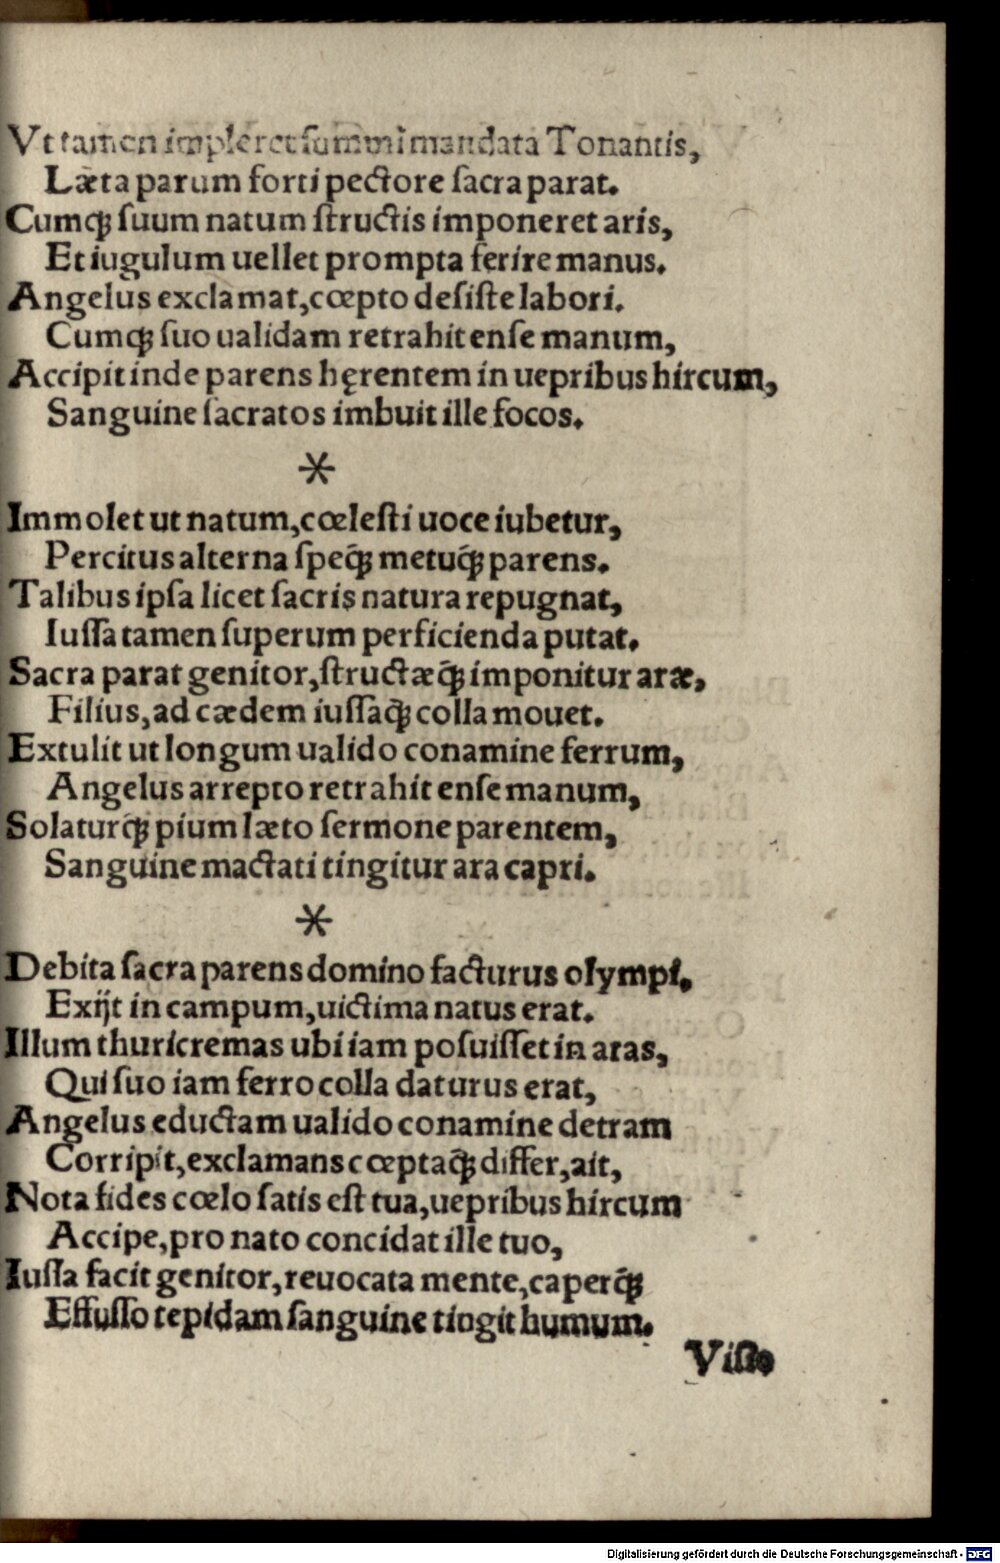 Vt tamen impleret summi mandata Tonantis,
Læta parum forti pectore sacra parat.
Cumq́; suum natum structis imponeret aris,
Et iugulum uellet prompta ferire manus.
Angelus exclamat, cœpto desiste labori.
Cumq́; suo ualidam retrahit ense manum,
Accipit inde parens hęrentem in uepribus hircum,
Sanguine sacratos imbuit ille focos.
*
Immolet ut natum, cœlesti uoce iubetur,
Percitus alterna speq́; metuq́; parens.
Talibus ipsa licet sacris natura repugnat,
Iussa tamen superum perficienda putat.
Sacra parat genitor, structæq́; imponitur aræ,
Filius, ad cædem iussaq́; colla mouet.
Extulit ut longum ualido conamine ferrum,
Angelus arrepto retrahit ense manum,
Solaturq́; pium læto sermone parentem,
Sanguine mactati tingitur ara capri.
*
Debita sacra parens domino facturus olympi,
Exijt in campum, uictima natus erat.
Illum thuricremas ubi iam posuisset in aras,
Qui suo iam ferro colla daturus erat,
Angelus eductam ualido conamine detram
Corripit, exclamans cœptaq́; differ, ait,
Nota fides cœlo satis est tua, uepribus hircum
Accipe, pro nato concidat ille tuo,
Iussa facit genitor, reuocata mente, caperq́;
Effusso tepidam sanguine tingit humum.
Viso
Digitalisierung gefördert durch die Deutsche Forschungsgemeinschaft - DFG